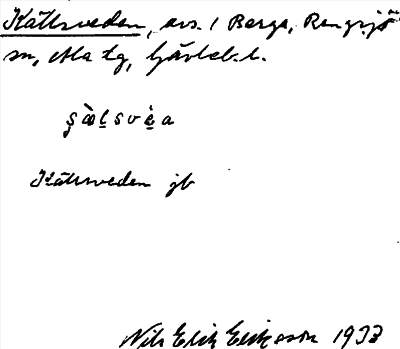 Kättsveden, avs. i Berga, Rengsjö
sn, Ala tg, Gävleb. l.
Kättsveden jb
Nils Erik Eriksson 1933